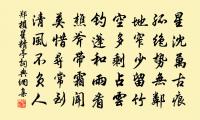 星沈萬古痕
孤絕勢無鄰
地窄少留竹
空多剩占雲
釣蓬和雨看
樵斧帶霜聞
莫惜尋常到
清風不負人
鄭損星精亭詞典網集